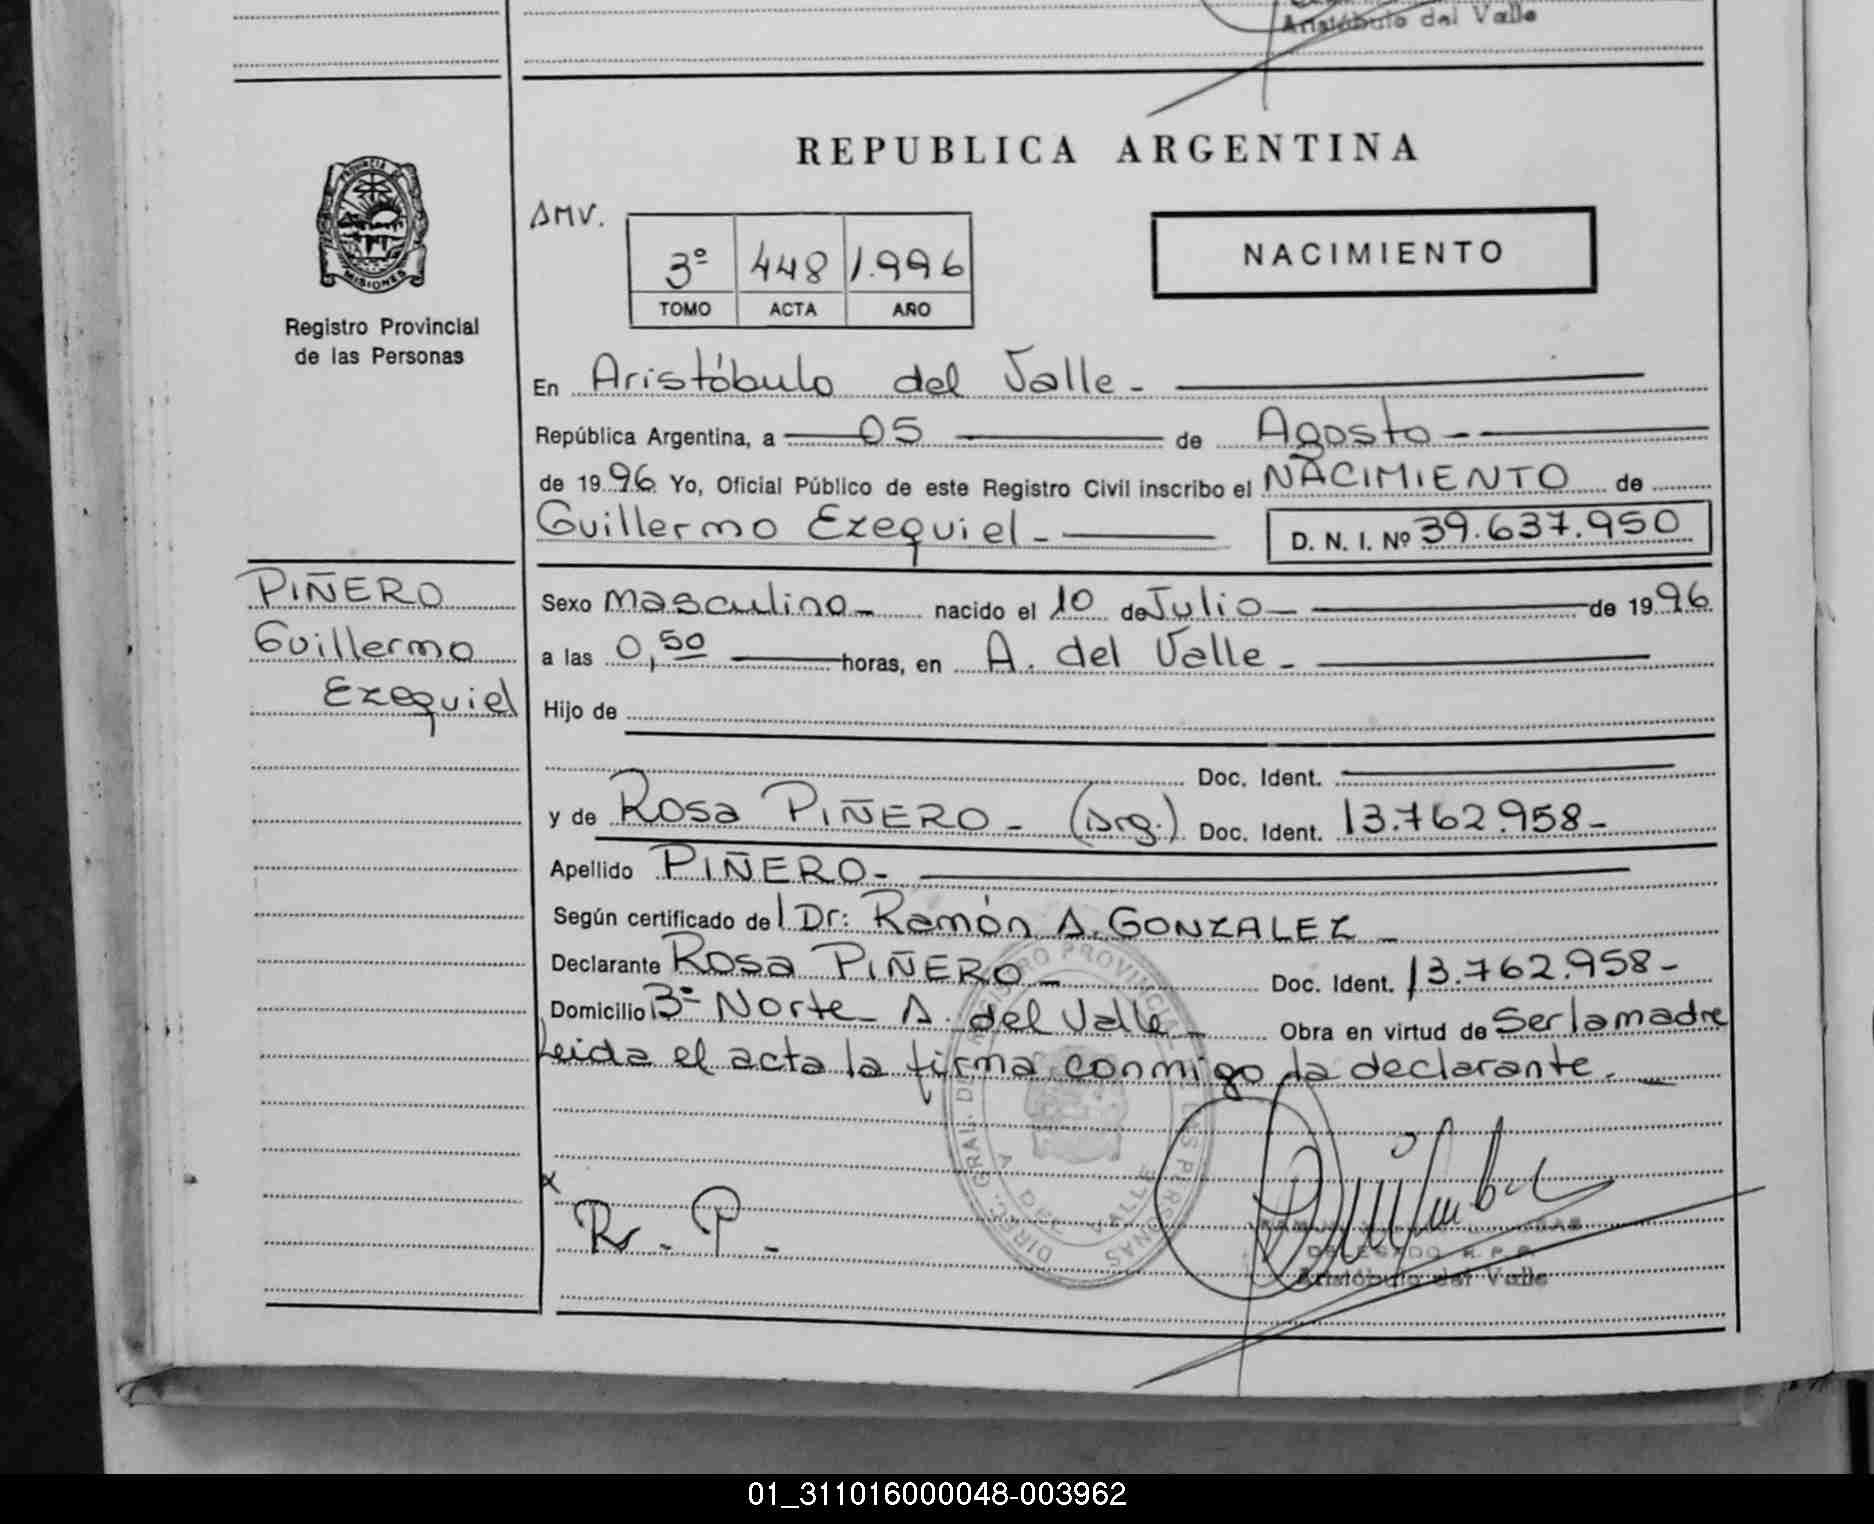 Aristóbulo del Valle
REPUBLICA ARGENTINA
PROVINCIA DE
MISIONES
Registro Provincial
de las Personas
AMV.
3º 448 1.996
TOMO ACTA AÑO
NACIMIENTO
En Aristóbulo del Valle -
República Argentina, a 05 de Agosto -
de 19 96 Yo, Oficial Público de este Registro Civil inscribo el NACIMIENTO de
Guillermo Ezequiel - D. N. I. Nº 39.637.950
PIÑERO
Guillermo
Ezequiel
Sexo masculino - nacido el 10 de Julio - de 19 96
a las 0,50 horas, en A. del Valle -
Hijo de
Doc. Ident.
y de Rosa PIÑERO - (Arg.) Doc. Ident. 13.762.958 -
Apellido PIÑERO -
Según certificado del Dr: Ramón A. GONZALEZ -
Declarante Rosa PIÑERO - Doc. Ident. 13.762.958 -
Domicilio Bº Norte - A. del Valle - Obra en virtud de Ser la madre
Leida el acta la firma conmigo la declarante. -
x
R. P. -
DIREC. GRAL. DE REGISTRO PROVINCIAL DE LAS PERSONAS
A. DEL VALLE
DELEGADO R. P. P.
Aristóbulo del Valle
01_311016000048-003962